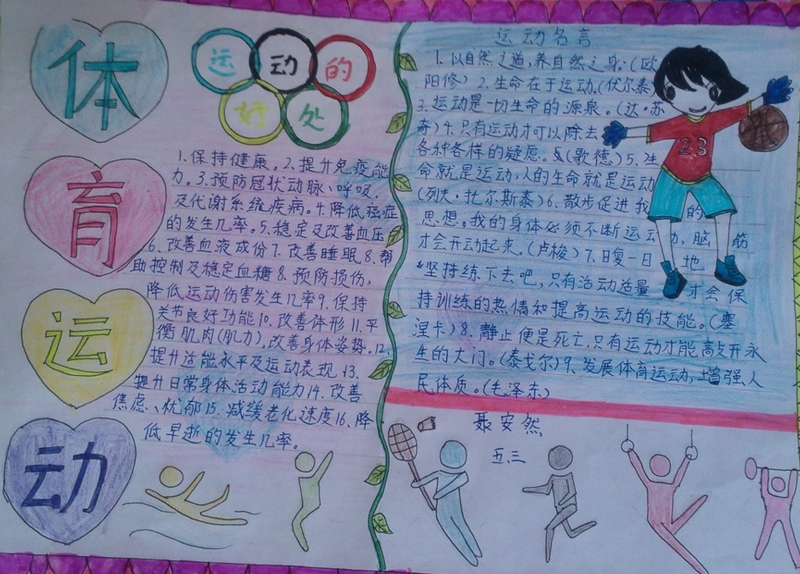 体
育
运
动
运动的
好处
1.保持健康。2.提升免疫能
力。3.预防冠状动脉、呼吸、
及代谢系统疾病。4.降低癌症
的发生几率。5.稳定及改善血压
6.改善血液成份7.改善睡眠.8.帮
助控制及稳定血糖8.预防损伤,
降低运动伤害发生几率9.保持
关节良好功能10.改善体形11.平
衡肌肉(肌力),改善身体姿势.12.
提升达能水平及运动表现.13.
提升日常身体活动能力14.改善
焦虑、忧郁15.减缓老化速度16.降
低早逝的发生几率。
运动名言
1.以自然之道,养自然之身.(欧
阳修)2.生命在于运动.(伏尔泰)
3.运动是一切生命的源泉。(达·芬
奇)4.只有运动才可以除去
各种各样的疑虑。(歌德)5.生
命就是运动,人的生命就是运动
(列夫·托尔斯泰)6.散步促进我的
思想。我的身体必须不断运动,脑筋
才会开动起来.(卢梭)7.日复一日地
坚持练下去吧,只有活动适量才会保
持训练的热情和提高运动的技能。(塞
涅卡)8.静止便是死亡,只有运动才能敲开永
生的大门。(泰戈尔)9.发展体育运动,增强人
民体质。(毛泽东)
聂安然
五.三
23